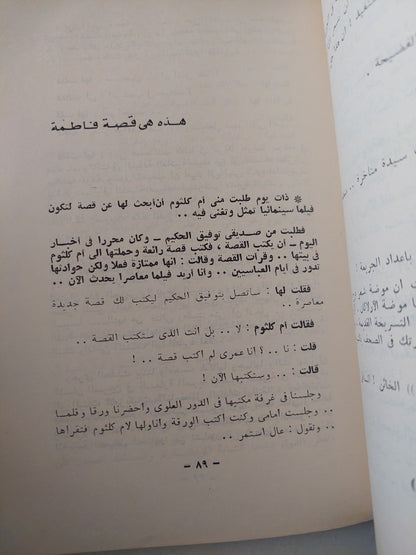 هذه هى قصة فاطمة
* ذات يوم طلبت منى أم كلثوم أن أبحث لها عن قصة لتكون
فيلما سينمائيا تمثل وتغنى فيه ..
فطلبت من صديقى توفيق الحكيم ــ وكان محررا فى أخبار
اليوم ــ أن يكتب القصة ، فكتب قصة رائعة وحملتها الى أم كلثوم
فى بيتها .. وقرأت القصة وقالت : انها ممتازة فعلا ولكن حوادثها
تدور فى أيام العباسيين .. وأنا أريد فيلما معاصرا يحدث الآن ..
فقلت لها : سأتصل بتوفيق الحكيم ليكتب لك قصة جديدة
معاصرة ..
فقالت أم كلثوم : لا .. بل انت الذى ستكتب القصة ..
قلت : نا .. ؟ أنا عمرى لم اكتب قصة .. !
قالت : .. وستكتبها الآن !
وجلسنا فى غرفة مكتبها فى الدور العلوى وأحضرنا ورقا وقلما
.. وجلست امامى وكنت أكتب الورقة وأناولها لأم كلثوم فتقرأها
.. وتقول : عال استمر ..
ــ ٨٩ ــ
الفضيحة
سيدة متأخرة ..
باعداد الجريمة :
أن موضة
موضة الأولاكان
التسريحة القديمة
فى الصحف
(( الخائن !